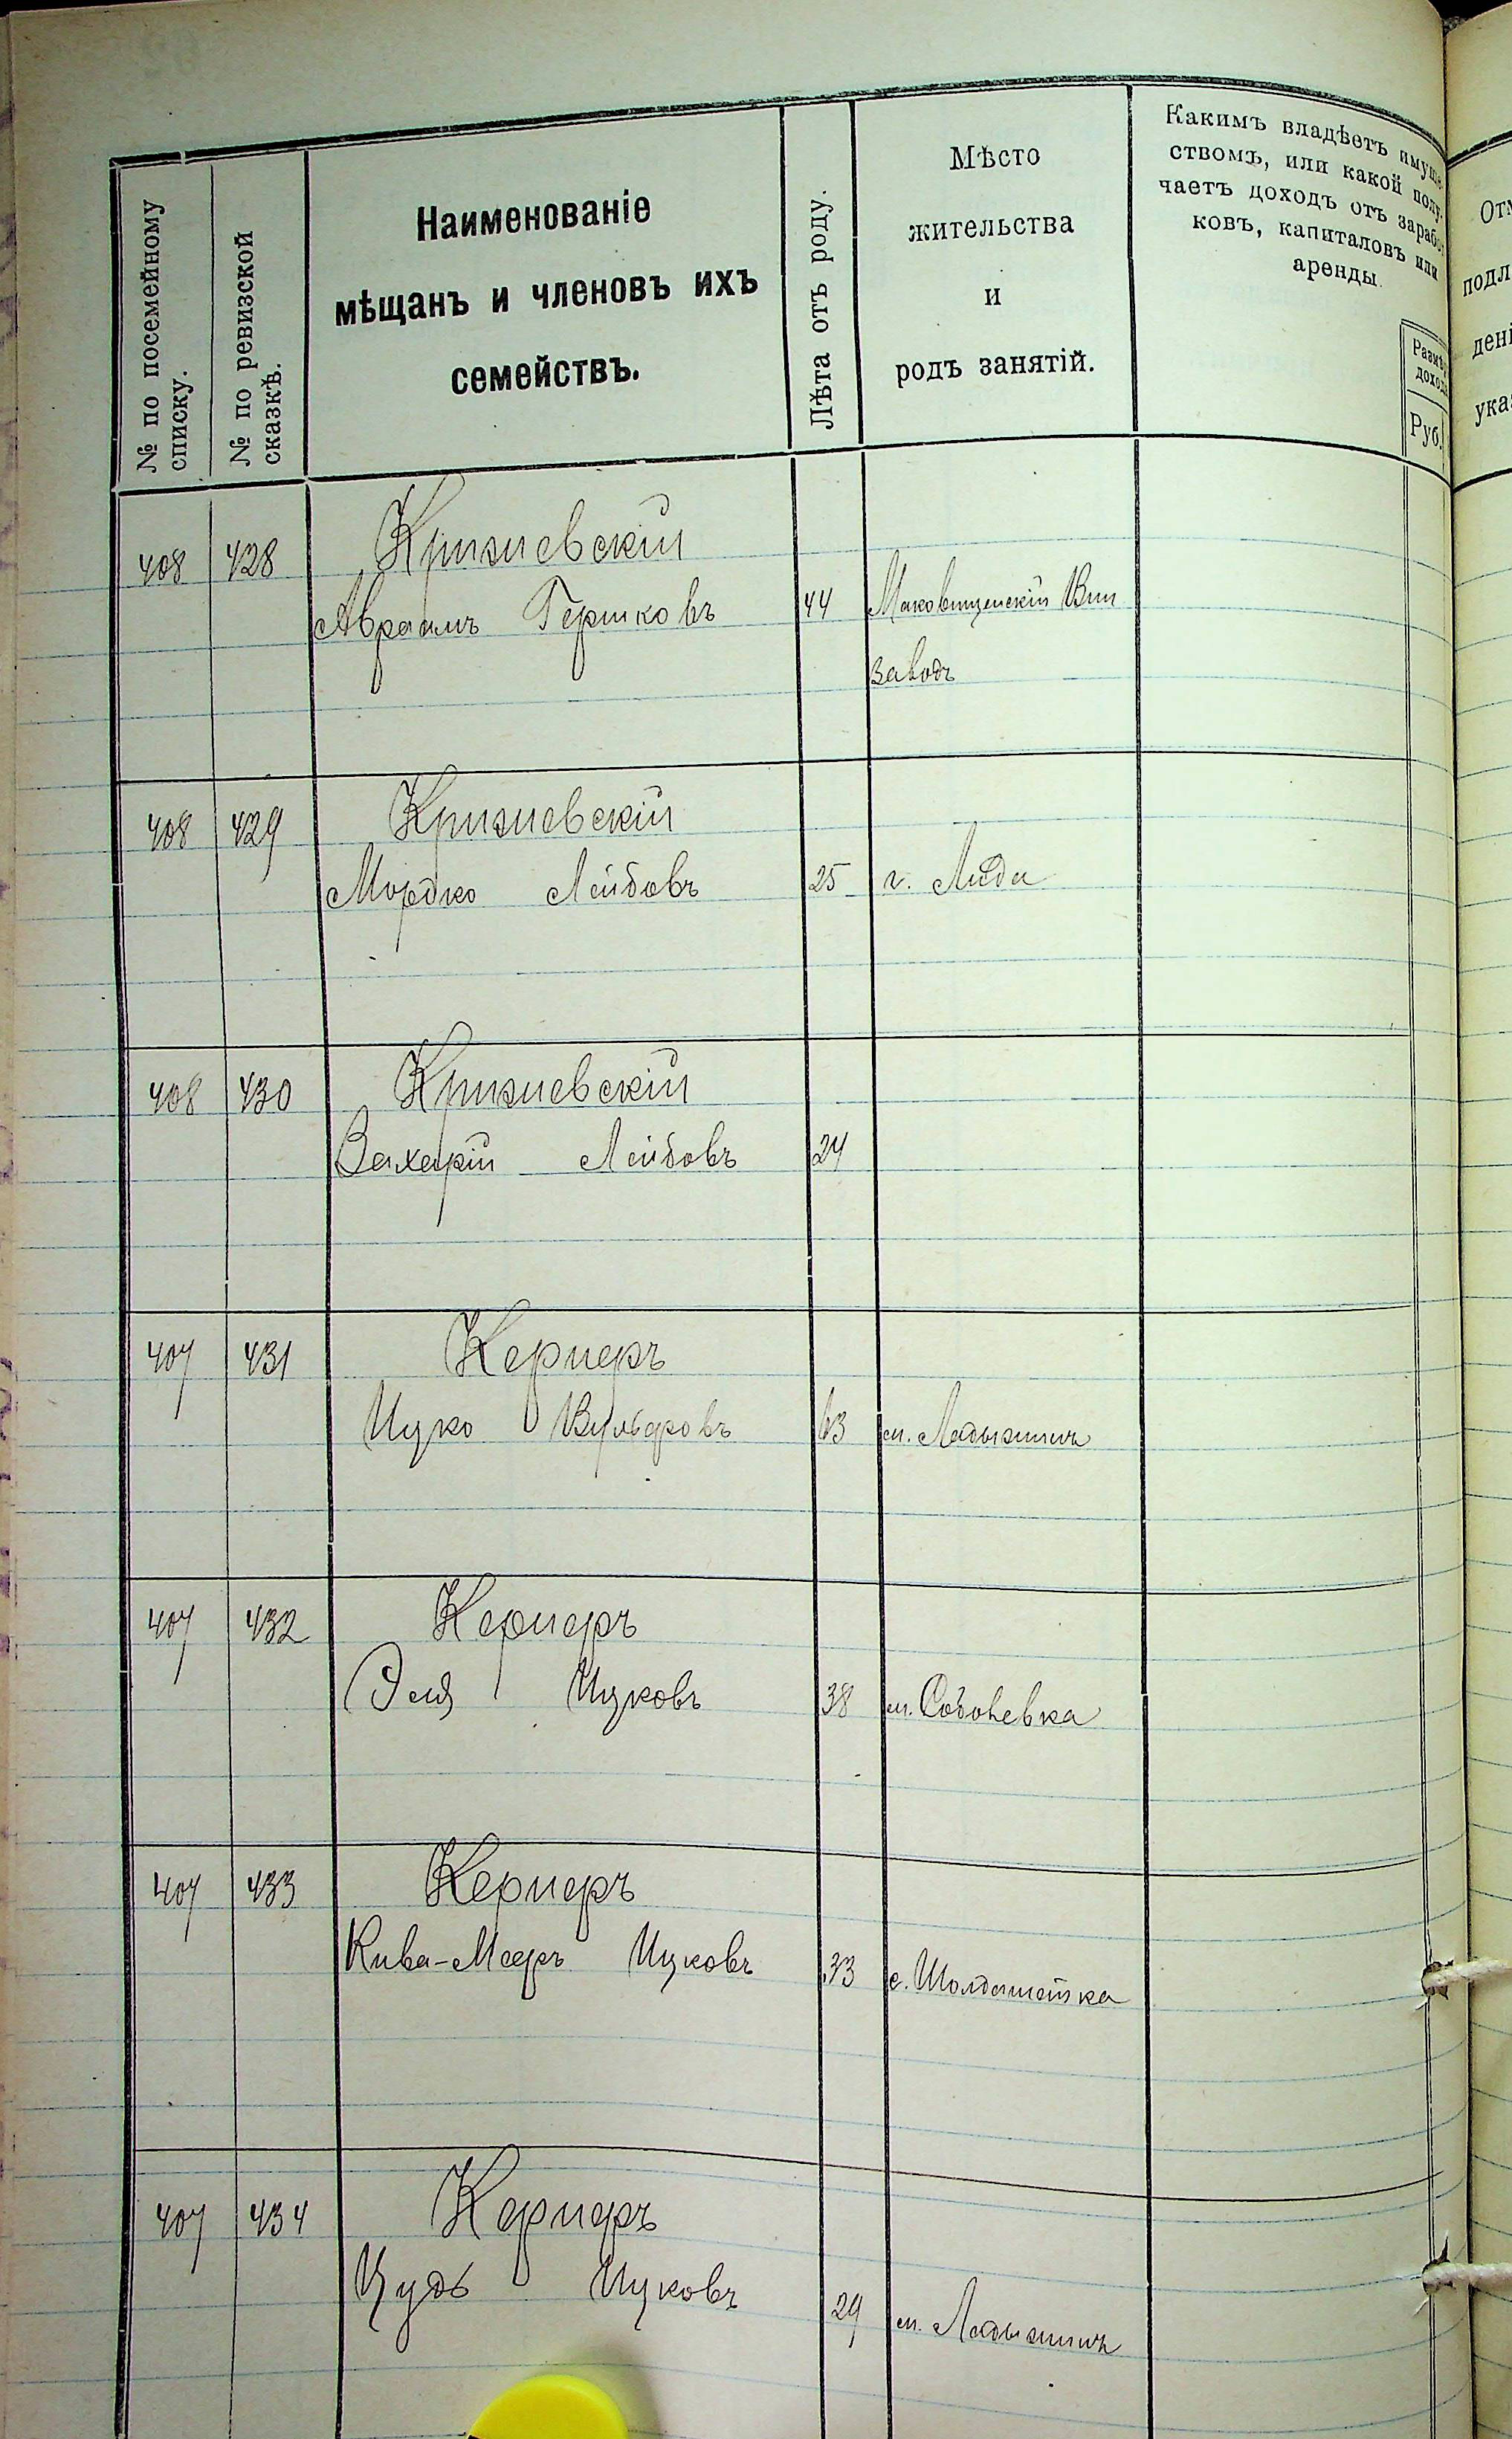 № по посемейному
списку.
№ по ревизской
сказкѣ.
Наименованіе
мѣщанъ и членовъ ихъ
семействъ.
Лѣта отъ роду.
Мѣсто
жительства
и
родъ занятій.
Какимъ владѣетъ имуще-
ствомъ, или какой полу-
чаетъ доходъ отъ заработ
ковъ, капиталовъ или
аренды.
Размѣ
доход
Руб.
408 428 Кризиевскій
Авраамъ Гершковъ 44
заводъ
408 429 Кризиевскій
Мордко Лейбовъ 25 г. Лида
408 430 Кризиевскій
Захарій Лейбовъ 24
407 431 Кернеръ
Ицко Вульфовъ 63 м. Ладыжинъ
407 432 Кернеръ
Эля Ицковъ 38 м. Соболевка
407 433 Кернеръ
Кива-Мееръ Ицковъ 33 с.
407 434 Кернеръ
Ицковъ 29 м. Ладыжинъ